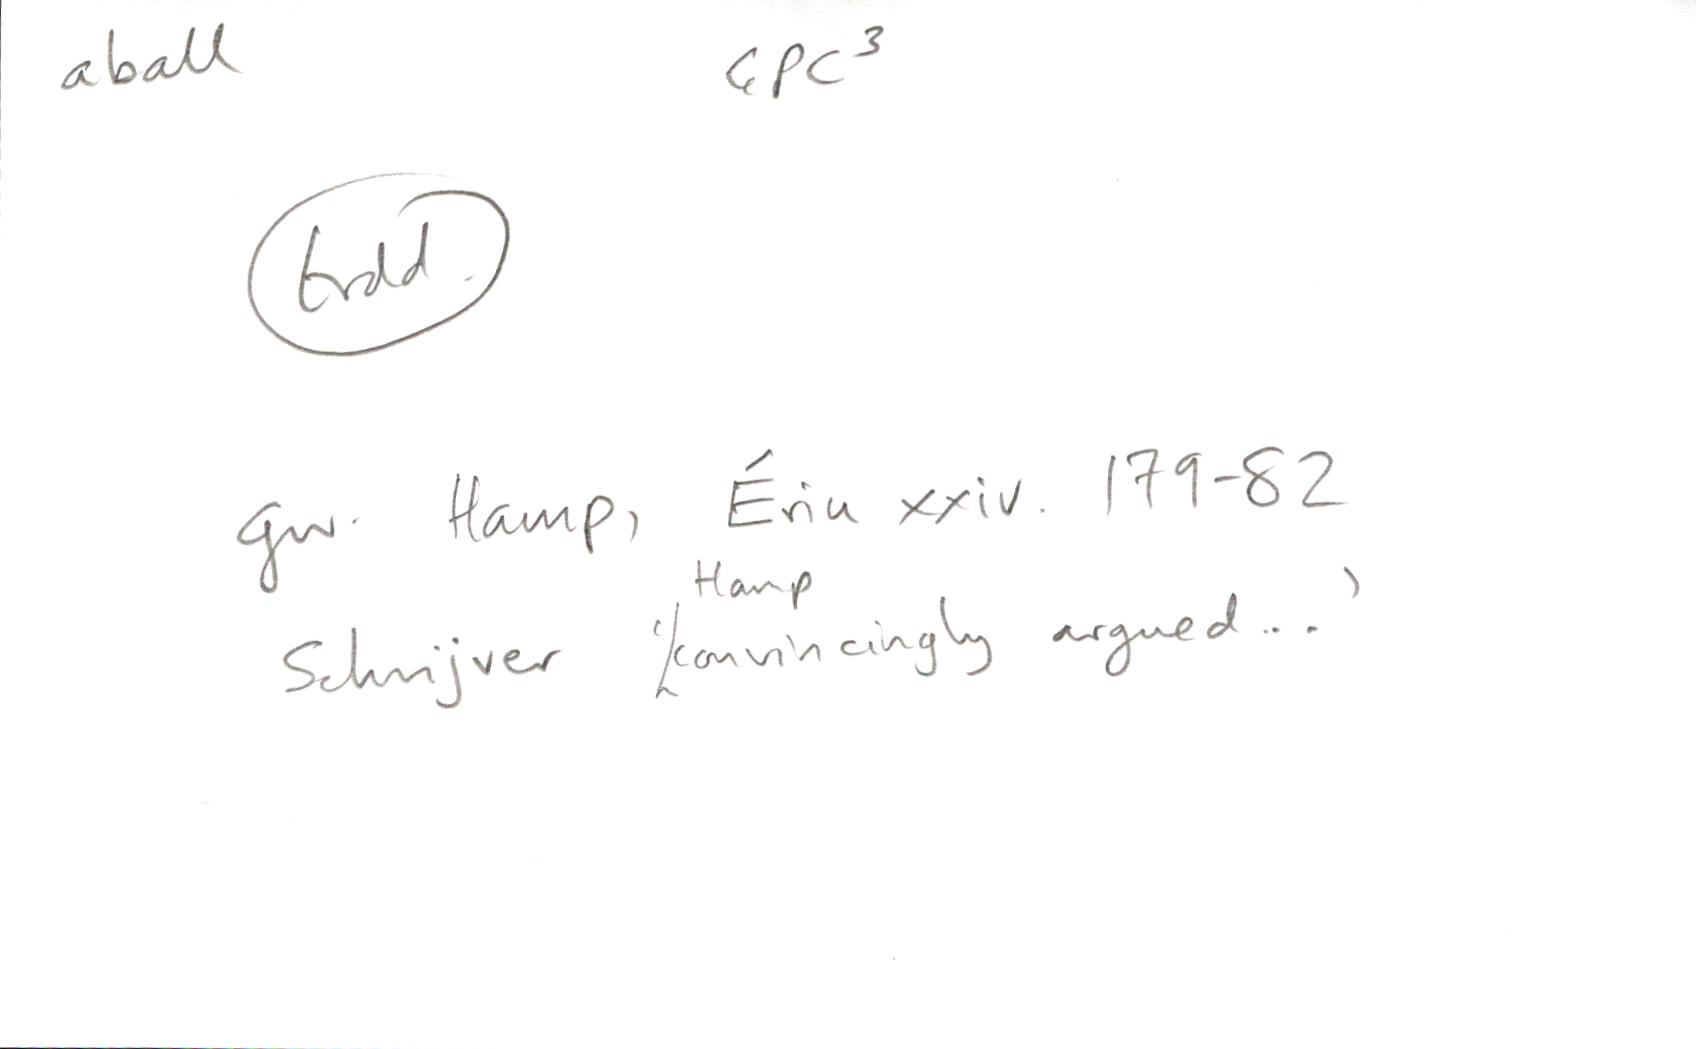 aball GPC³
trdd.
gw. Hamp, Ériu xxiv. 179-82
Hamp
Schrijver 'convincingly argued...'